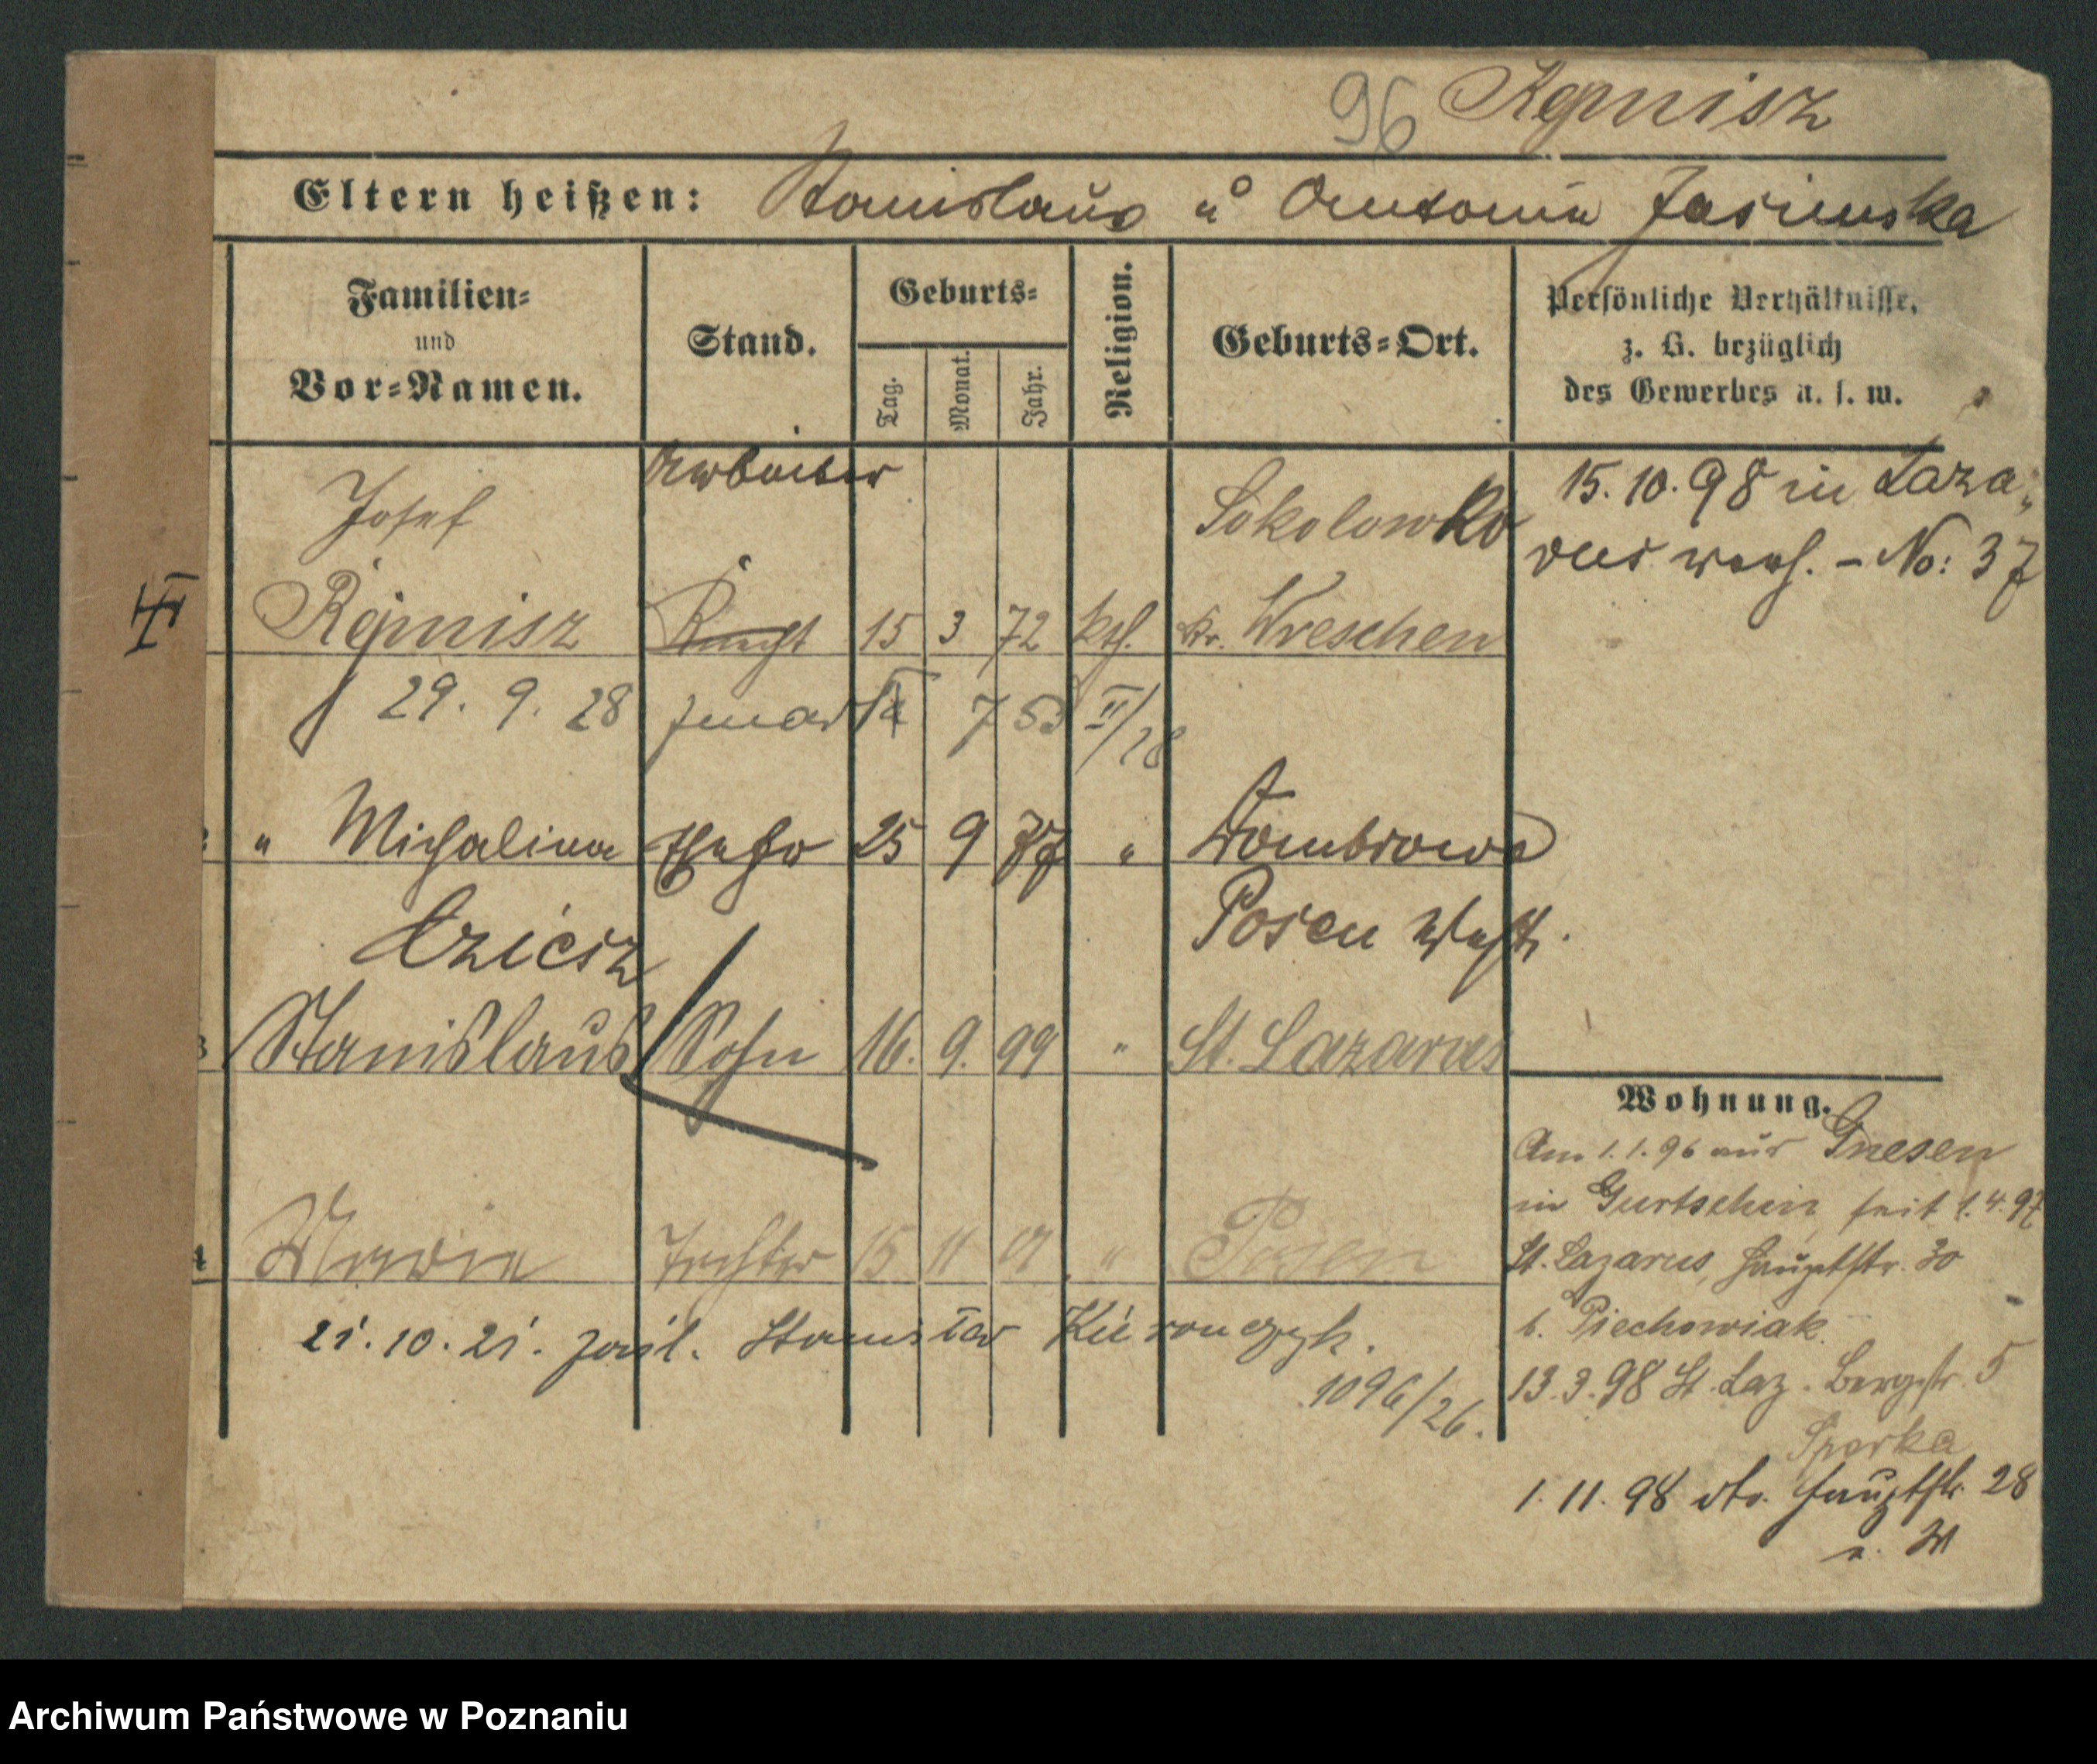 96 Kęmnisz
Eltern heißen: Stanislaus u Antonia Jasinska
Familien-
und
Vor-Namen.
Stand.
Geburts-
Tag.
Monat.
Jahr.
Religion.
Geburts-Ort.
Persönliche Verhältnisse,
z. B. bezüglich
des Gewerbes u. s. w.
Arbeiter
Josef
Sokolowko
15.10.98 in Laza-
rus - No: 37
Knecht 15 3 72 kth. Kr. Wreschen
29. 9. 28
II/28
2 " Michalina Ehefr 25 9 77 " Dombrowo
Posen West.
3 Stanislaus Sohn 16. 9. 99 " St. Lazarus
Wohnung.
Am 1.1.96 aus Gnesen
in Gurtschin seit 1.4.97
4 Maria Tochter 15 11 01 " Posen
St. Lazarus, Hauptstr. 30
b. Piechowiak
21.10.21.
1096/26.
13.3.98 St. Laz. Bergstr 5
Sperka
1.11.98 dto. Hauptstr 28
Archiwum Państwowe w Poznaniu